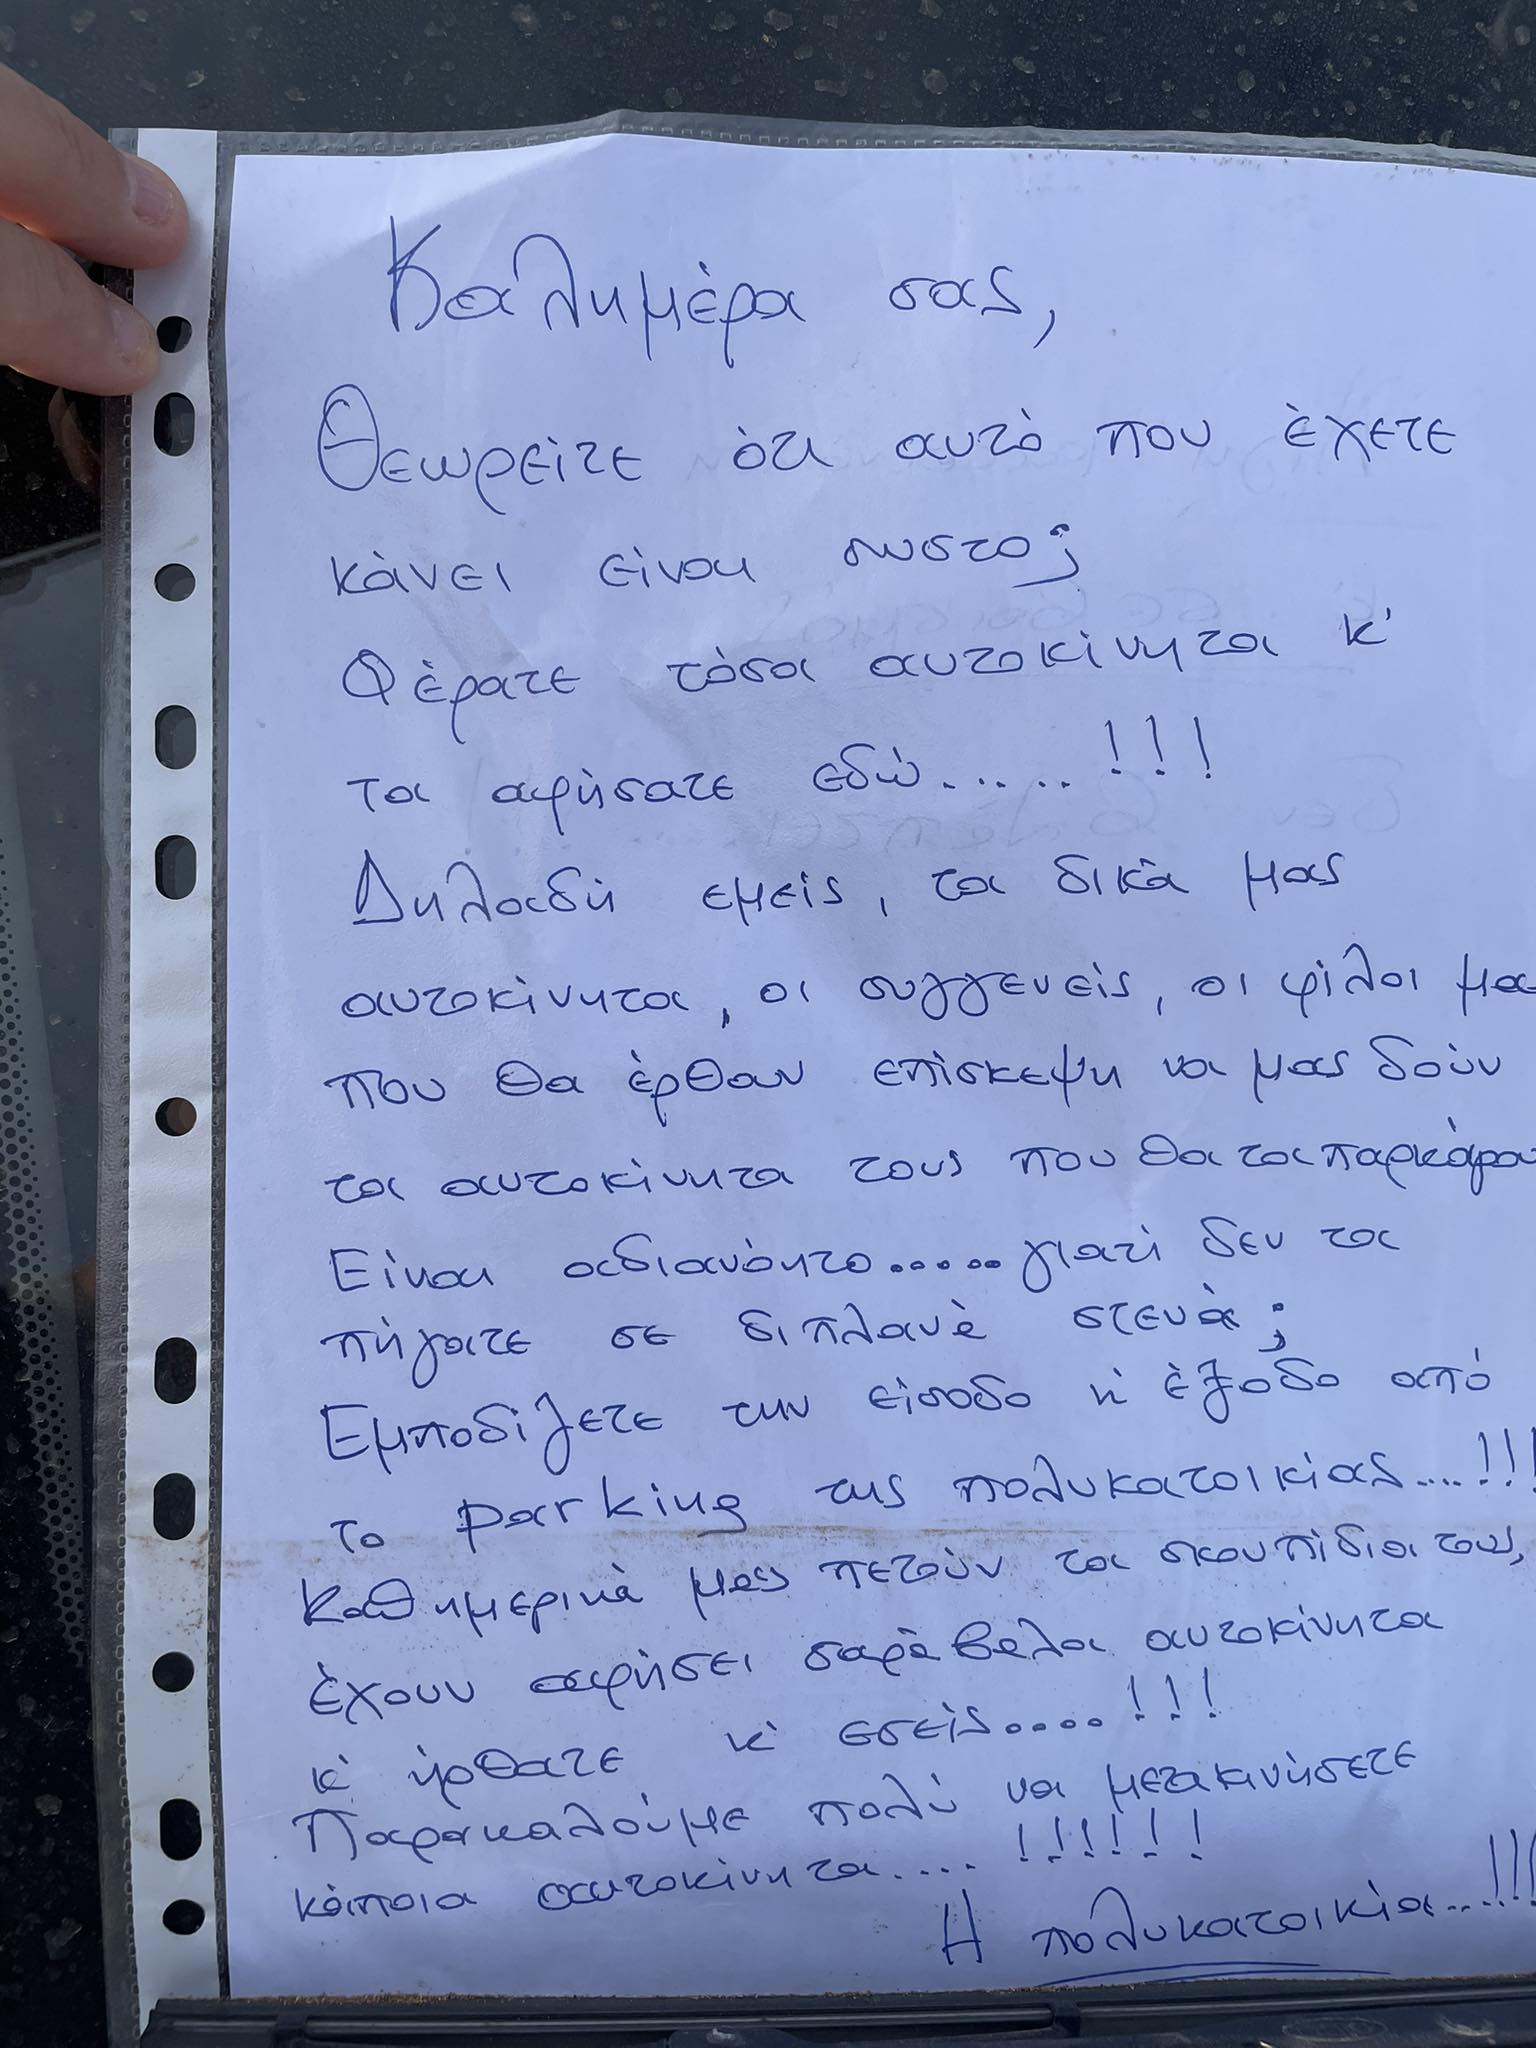 Καλημέρα σας,
Θεωρείτε ότι αυτό που έχετε
κάνει είναι σωστό;
Φέρατε τόσα αυτοκίνητα κ'
τα αφήσατε εδώ......!!!
Δηλαδή εμείς, τα δικά μας
αυτοκίνητα, οι συγγενείς, οι φίλοι μα
που θα έρθαν επίσκεψη να μας δούν
τα αυτοκίνητα τους που θα τα παρκάρου
Είναι αδιανόητο.....γιατί δεν τα
πήγατε σε διπλανά στενά;
Εμποδίζετε την είσοδο κ' έξοδο από
το parking της πολυκατοικίας....!!!
Καθημερινά μας πετούν τα σκουπίδια τους,
έχουν αφήσει σαράβαλα αυτοκίνητα
κ' ήρθατε κ' εσείς....!!!
Παρακαλούμε πολύ να μετακινήσετε
κάποια αυτοκίνητα....!!!!!!
Η πολυκατοικία...!!!